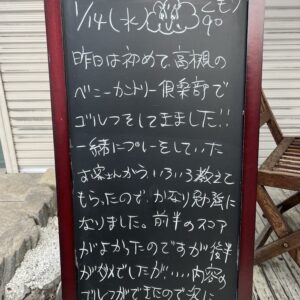 1/14(水) くもり
9°
昨日は初めて、高槻の
ベニーカントリー倶楽部で
ゴルフをして来ました!!
一緒にプレーをしていた
お客さんからいろいろ教えて
もらったので、かなり勉強に
なりました。前半のスコア
がよかったのですが後半
がダメでしたが....内容の
ゴルフができたので次に